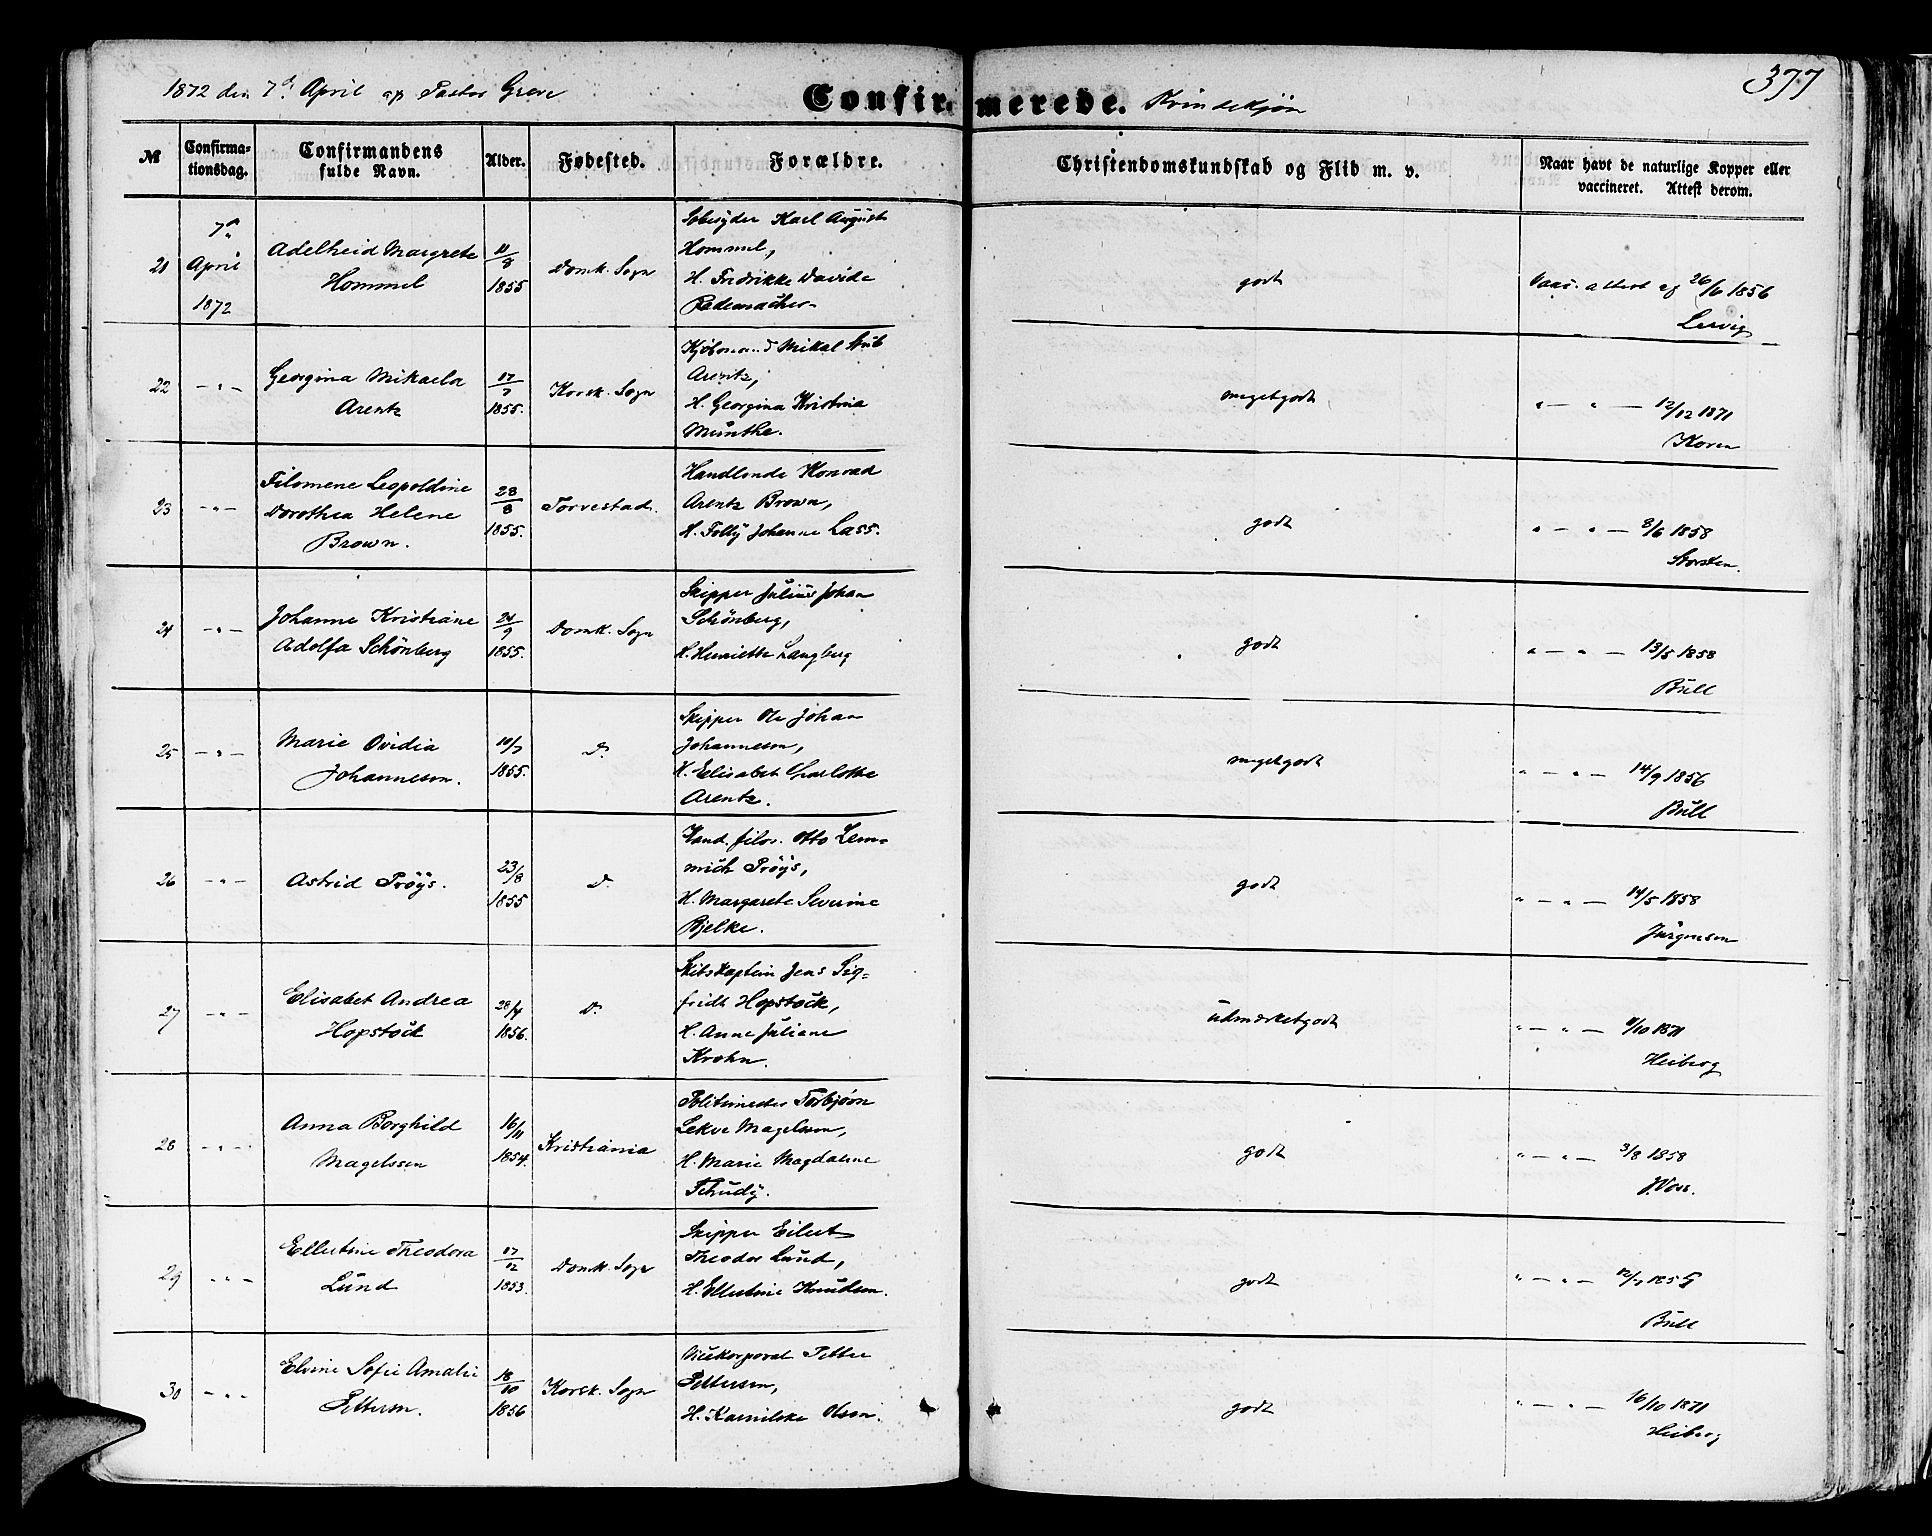 1872 den 7d April af Pastor Greve
Confirmerede. Kvindekjøn
377
№
Confirmationsdag.
Confirmandens fulde Navn.
Alder.
Fødested.
Forældre.
Christendomskundskab og Flid m. v.
Naar havt de naturlige Kopper eller
vaccineret. Attest derom.
21
7d
April
1872
Adelheid Margrete
Hommel
11/8
1855
Domk. Sogn
Karl August
Hommel,
H. Fredrikke Davide
Rademacher
godt
Vacc. attest af 26/6 1856
Lervig
22
— " —
Georgina Mikaela
Arentz
17/7
1855.
Korsk. Sogn
Kjøbmand Mikal Stub
Arentz,
H. Georgina Kristina
Münthe.
megetgodt
" — " — 12/12 1871
Koren
23
— " —
Filomene Leopoldine
Dorothea Helene
Brown.
28/8
1855.
Torvestad.
Handlende Konrad
Arentz Brown,
H. Johanne Lass.
godt
" — " — 8/6 1858
Storsten.
24
— " —
Johanne Kristiane
Adolfa Schönberg
24/9
1855.
Domk. Sogn
Skipper Julius Johan
Schönberg,
H. Henriette Langberg
godt
" — " — 13/5 1858
Büll
25
— " —
Marie Ovidia
Johanneson.
10/7
1855.
D.
Skipper Ole Johan
Johanneson,
H. Elisabet Charlotte
Arentz.
megetgodt
" — " — 14/9 1856
Büll
26
— " —
Astrid Pröÿs.
23/8
1855
D.
Kand. filos. Otto Lem-
mich Pröÿs,
H. Margarete Severine
Bjelke.
godt
" — " — 14/5 1858
Jürgensen
27
— " —
Elisabet Andrea
Hopstock
28/4
1856.
D.
Skibskaptein Jens Sig-
fridt Hopstock,
H. Anne Juliane
Krohn.
üdmærketgodt
" — " — 9/10 1871
Heiberg
28
— " —
Anna Borghild
Magelssen
16/11
1854.
Kristiania
Politimester Torbjörn
Lekve Magelssen,
H. Marie Magdalene
Schüdÿ.
godt
" — " — 3/8 1858
J. Voss.
29
— " —
Ellertine Theodora
Lünd
17/12
1853.
Domk. Sogn
Skipper Eilert
Theodor Lünd,
H. Ellertine Knüdsen.
godt
Büll
30
— " —
Elvine Sofie Amalie
Petterson.
18/10
1856
Korsk. Sogn
Vicekorporal Petter
Pettersen,
H. Olsen.
godt
" — " — 16/10 1871
Heiberg